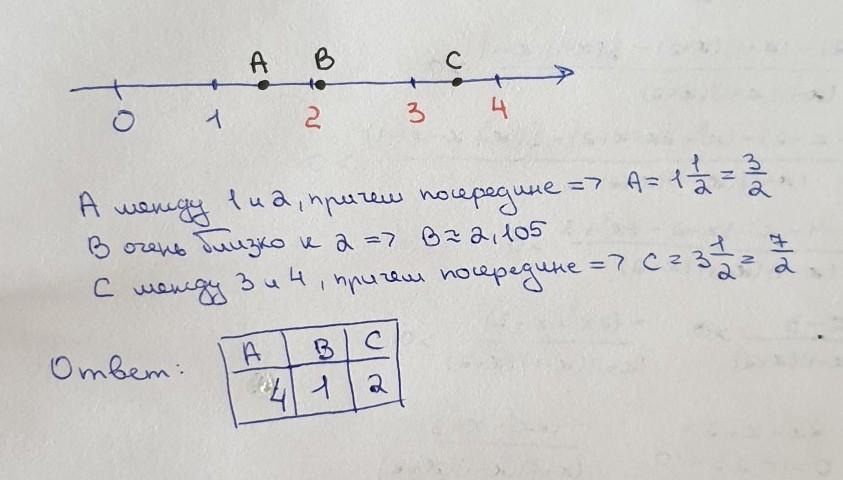 A B C
0 1 2 3 4
A между 1 и 2, причем посередине => A = 1 1/2 = 3/2
B очень близко к 2 => B ≈ 2,105
C между 3 и 4, причем посередине => C = 3 1/2 = 7/2
Ответ:
A B C
4 1 2